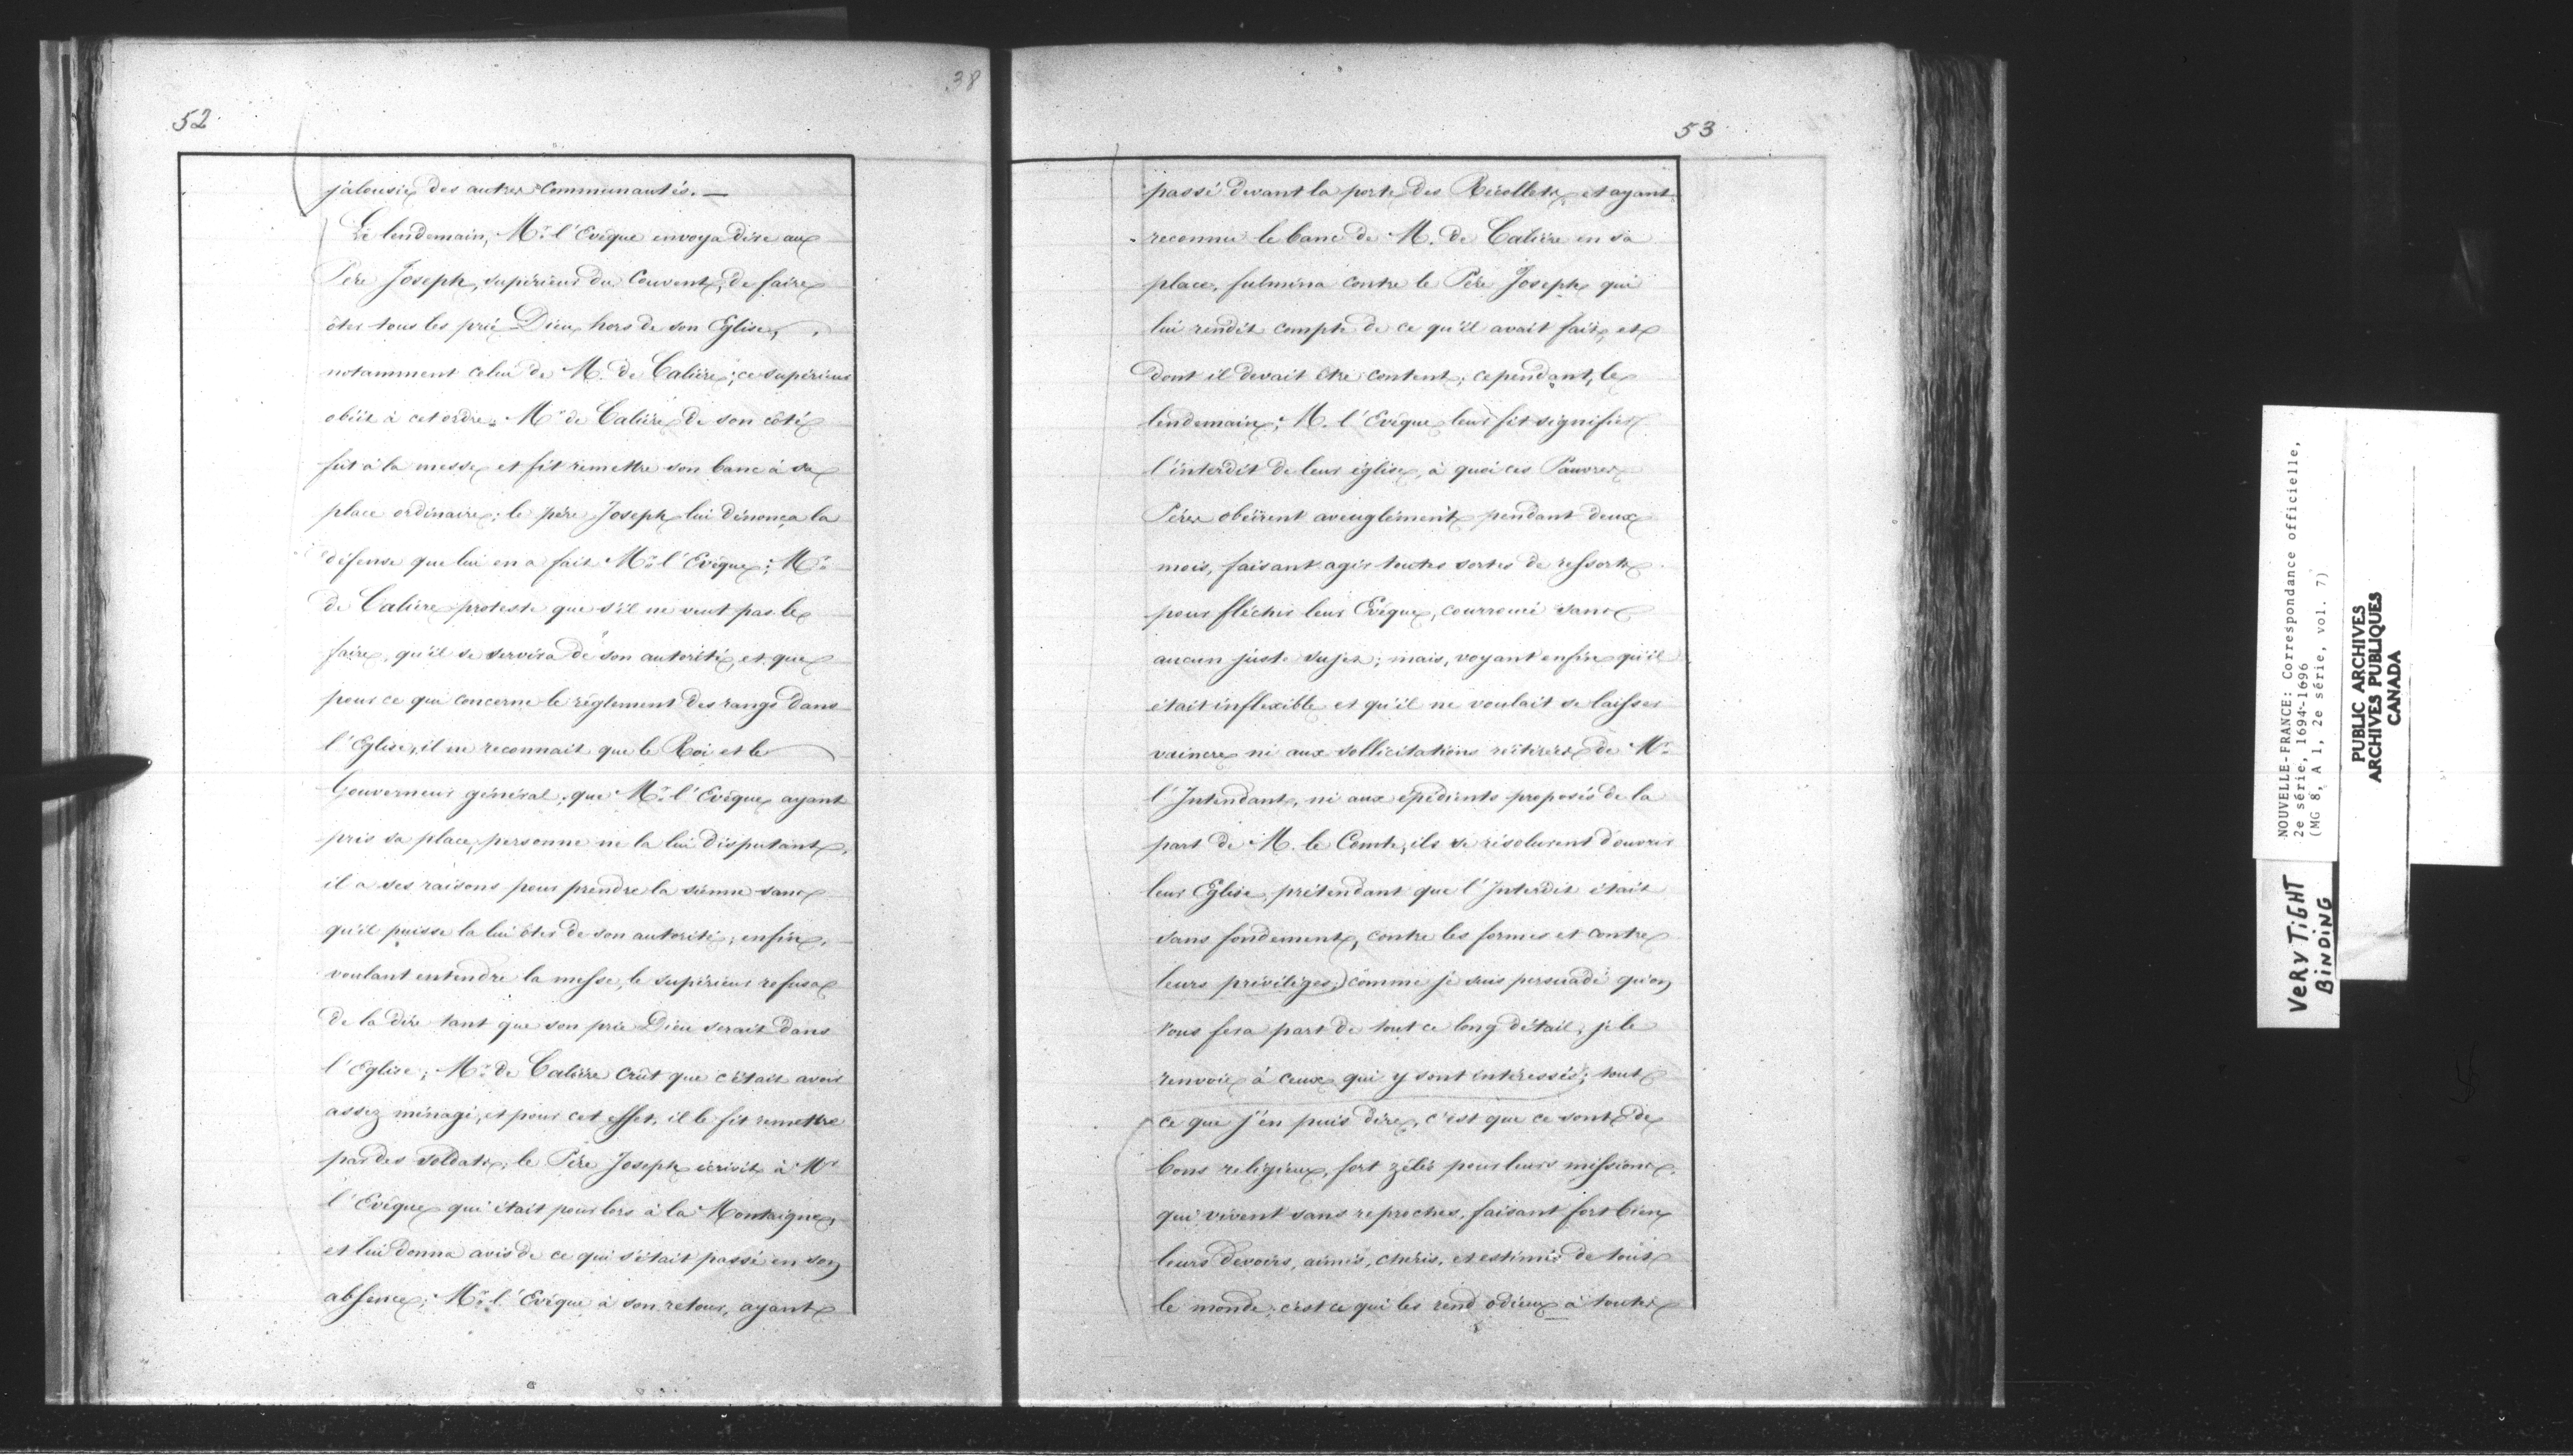 38
52
jalousie des autres Communautés. —
Le lendemain, Mr. l'Evêque envoya dire au
Père Joseph, supérieur du Couvent, de faire
ôter tous les prié Dieu hors de son Eglise,
notamment celui de M. de Calière; ce supérieur
obéit à cet ordre. Mr de Calière de son côté
fût à la messe et fit remettre son banc à sa
place ordinaire; le père Joseph lui dénonça la
défense que lui en a fait Mr. l'Evêque; Mr.
de Calière proteste que s'il ne veut pas le
faire, qu'il se servira de son autorité, et que
pour ce qui concerne le règlement des rangs dans
l'Eglise, il ne reconnait que le Roi et le
Gouverneur général; que Mr. l'Evêque ayant
pris sa place, personne ne la lui disputant,
il a ses raisons pour prendre la sienne sans
qu'il puisse la lui ôter de son autorité; enfin,
voulant entendre la messe, le supérieur refusa
de la dire tant que son prie Dieu serait dans
l'Eglise; Mr. de Calière crût que c'était avoir
assez ménagé, et pour cet effet, il le fit remettre
par des soldats; le Père Joseph écrivit à Mr
l'Evêque qui était pour lors à la Montaigne,
et lui donna avis de ce qui s'était passé en son
absence; Mr. l'Evêque à son retour, ayant
53
passé devant la porte des Récollets, et ayant
reconnu le banc de M. de Calière en sa
place, fulmina contre le Père Joseph qui
lui rendit compte de ce qu'il avait fait, et
dont il devait être content; cependant, le
lendemain, M. l'Evêque leur fit signifier
l'interdit de leur église, à quoi ces Pauvres
Pères obéirent aveuglément pendant deux
mois, faisant agir toutes sortes de ressorts
pour fléchir leur Evêque, courroucé sans
aucun juste sujet; mais, voyant enfin qu'il
était inflexible et qu'il ne voulait se laisser
vaincre ni aux sollicitations réitérées de Mr.
l'Intendant, ni aux épédients proposés de la
part de M. le Comte, ils se résolurent d'ouvrir
leur Eglise, prétendant que l'Interdit était
sans fondement, contre les formes et contre
leurs privilèges;) comme je suis persuadé qu'on
vous fera part de tout ce long détail, je le
renvoie à ceux qui y sont intéressés; tout
ce que j'en puis dire, c'est que ce sont de
bons religieux, fort zélés pour leurs missions,
qui vivent sans reproches, faisant fort bien
leurs devoirs, aimés, chéris, et estimés de tout
le monde; c'est ce qui les rend odieux à toutes
NOUVELLE-FRANCE: Correspondance officielle,
2e série, 1694-1696
(MG 8, A 1, 2e série, vol. 7)
PUBLIC ARCHIVES
ARCHIVES PUBLIQUES
CANADA
VERY TIGHT
BINDING